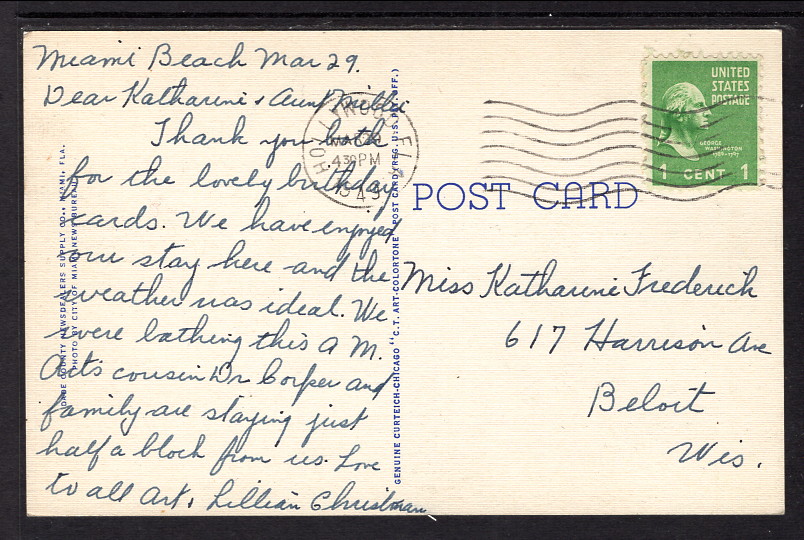 Miami Beach Mar 29.
Dear Katharine & Aunt Millie
Thank you both
for the lovely birthday
cards. We have enjoyed
our stay here and the
weather was ideal. We
were bathing this A M.
Art's cousin Dr Corper and
family are staying just
half a block from us. Love
to all Art & Lillian Christman
DADE COUNTY NEWSDEALERS SUPPLY CO., MIAMI, FLA.
PHOTO BY CITY OF MIAMI NEWS BUREAU
GENUINE CURTEICH-CHICAGO "C.T. ART-COLORTONE" POST CARD (REG. U.S. PAT. OFF.)
MAR 29
4 30 PM
POST CARD
UNITED
STATES
POSTAGE
GEORGE
WASHINGTON
1 CENT 1
Miss Katharine Frederick
617 Harrison Ave
Beloit
Wis.